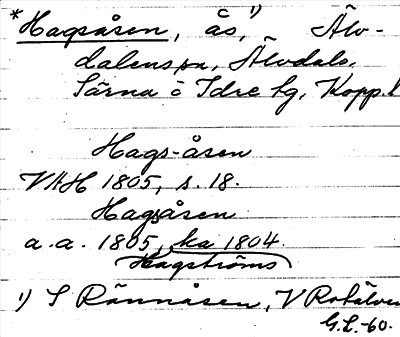 *Hagsåsen, ås,¹⁾ Älv-
dalens sn, Älvdals,
Särna o Idre tg, Kopp.l
Hags-åsen
VAH 1805, s. 18.
Hagsåsen
a.a. 1805, ka 1804.
Hagströms
¹⁾ S Rännåsen, V Rotälven
G.L.-60.